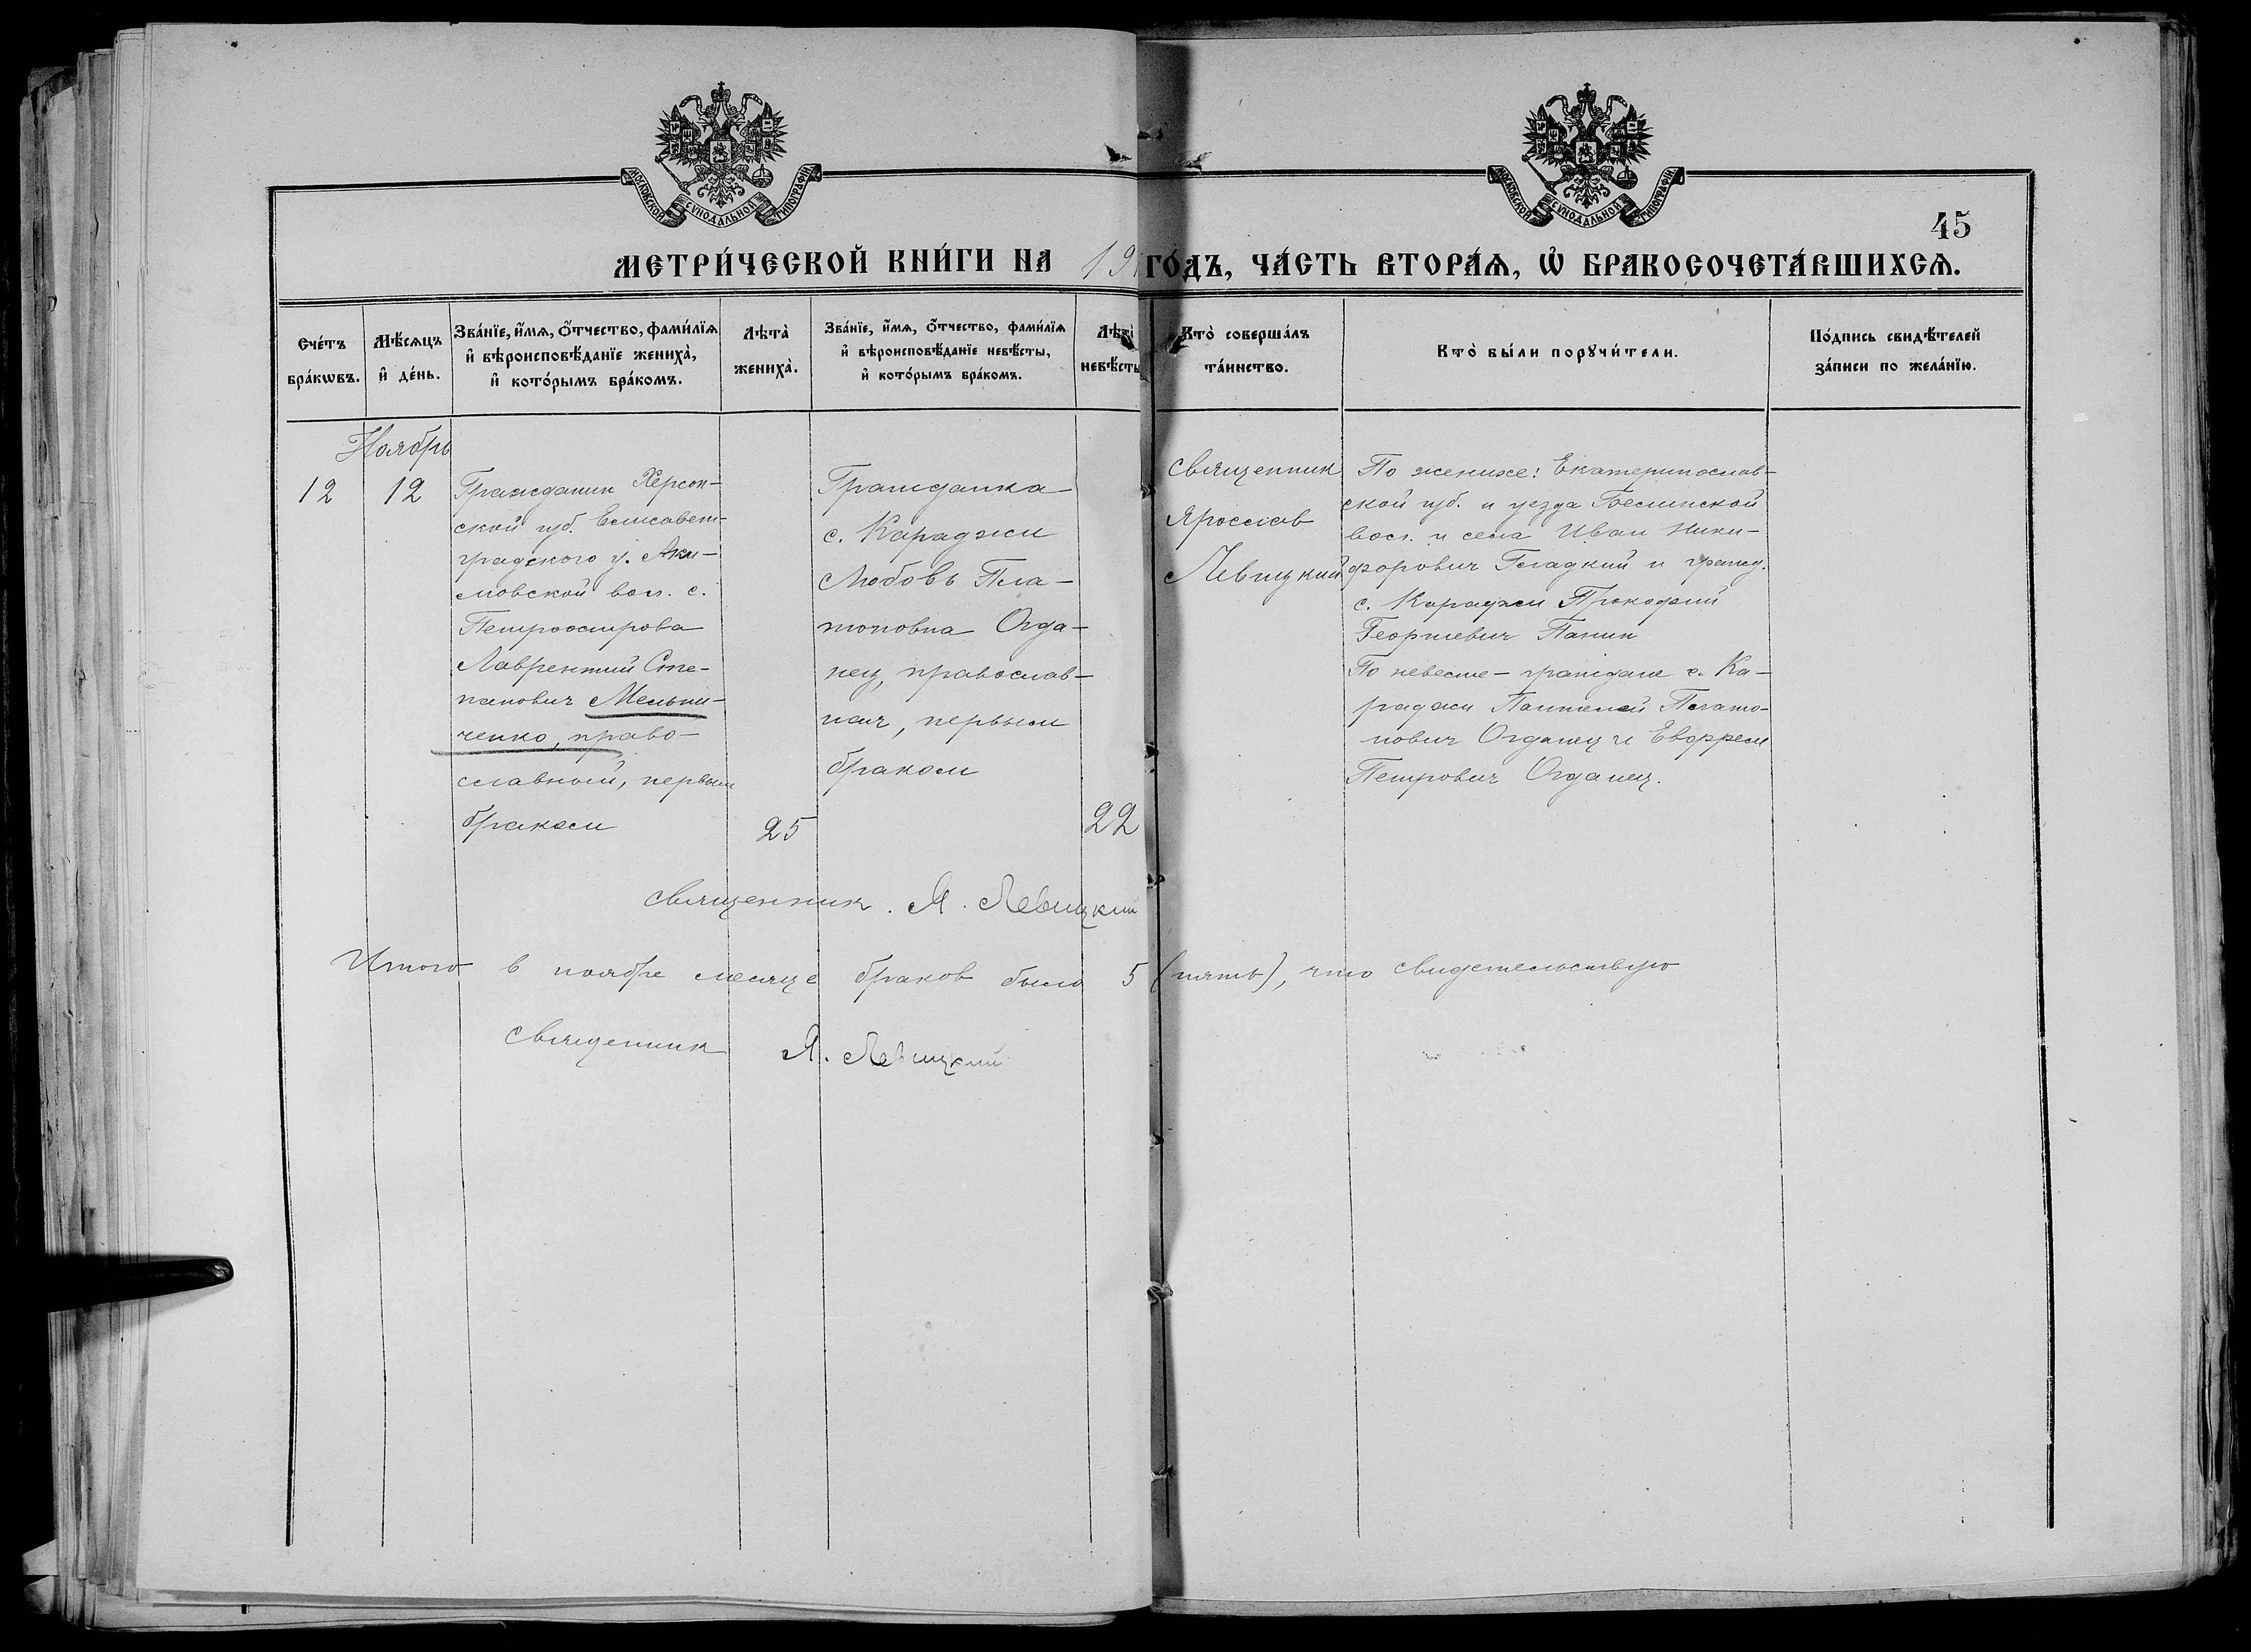 МОСКОВСКОЙ СѴНОДАЛЬНОЙ ТИПОГРАФІИ
МОСКОВСКОЙ СѴНОДАЛЬНОЙ ТИПОГРАФІИ
45
МЕТРИ́ЧЕСКОЙ КНИ́ГИ НА 19 ГО́ДЪ, ЧА́СТЬ ВТОРА́Ѧ, Ѡ҆ БРАКОСОЧЕТА́ВШИХСѦ.
Счéтъ
брáкѡвъ.
Мѣ́сѧцъ
и҆ дéнь.
Звáнїе, и҆́мѧ, ѻ҆́тчество, фами́лїѧ
и҆ вѣроисповѣ́данїе женихà,
и҆ котóрымъ брáкомъ.
Лѣтà
женихà.
Звáнїе, и҆́мѧ, ѻ҆́тчество, фами́лїѧ
и҆ вѣроисповѣ́данїе невѣ́сты,
и҆ котóрымъ брáкомъ.
Лѣтà
невѣ́сты
Ктò совершáлъ
тáинство.
Ктò бы́ли порꙋчи́тели.
Пóдпись свидѣ́телей
зáписи по желáнїю.
Ноябрь
12
12
Гражданин Херсон-
ской губ. Елисавет-
градского у. Аки-
мовской вол. с.
Петроострова
Лаврентий Сте-
панович Мельни-
ченко, право-
славный, первым
браком
25
Гражданка
с. Караджи
Любовь Пла-
тоновна Огда-
нец, православ-
ная, первым
браком
22
Священник
Ярослав
Левицкий
По женихе: Екатеринослав-
ской губ. и уезда
вол. и села Иван Ники-
форович Гладкий и гражд.
с. Караджи Прокофий
Георгиевич Панин
По невесте - граждане с. Ка-
раджи Пантелей Плато-
нович Огданец и Евфрем
Петрович Огданец.
Священник. Я. Левицкий
Итого в ноябре месяце браков было 5 (пять), что свидетельствую
Священник Я. Левицкий